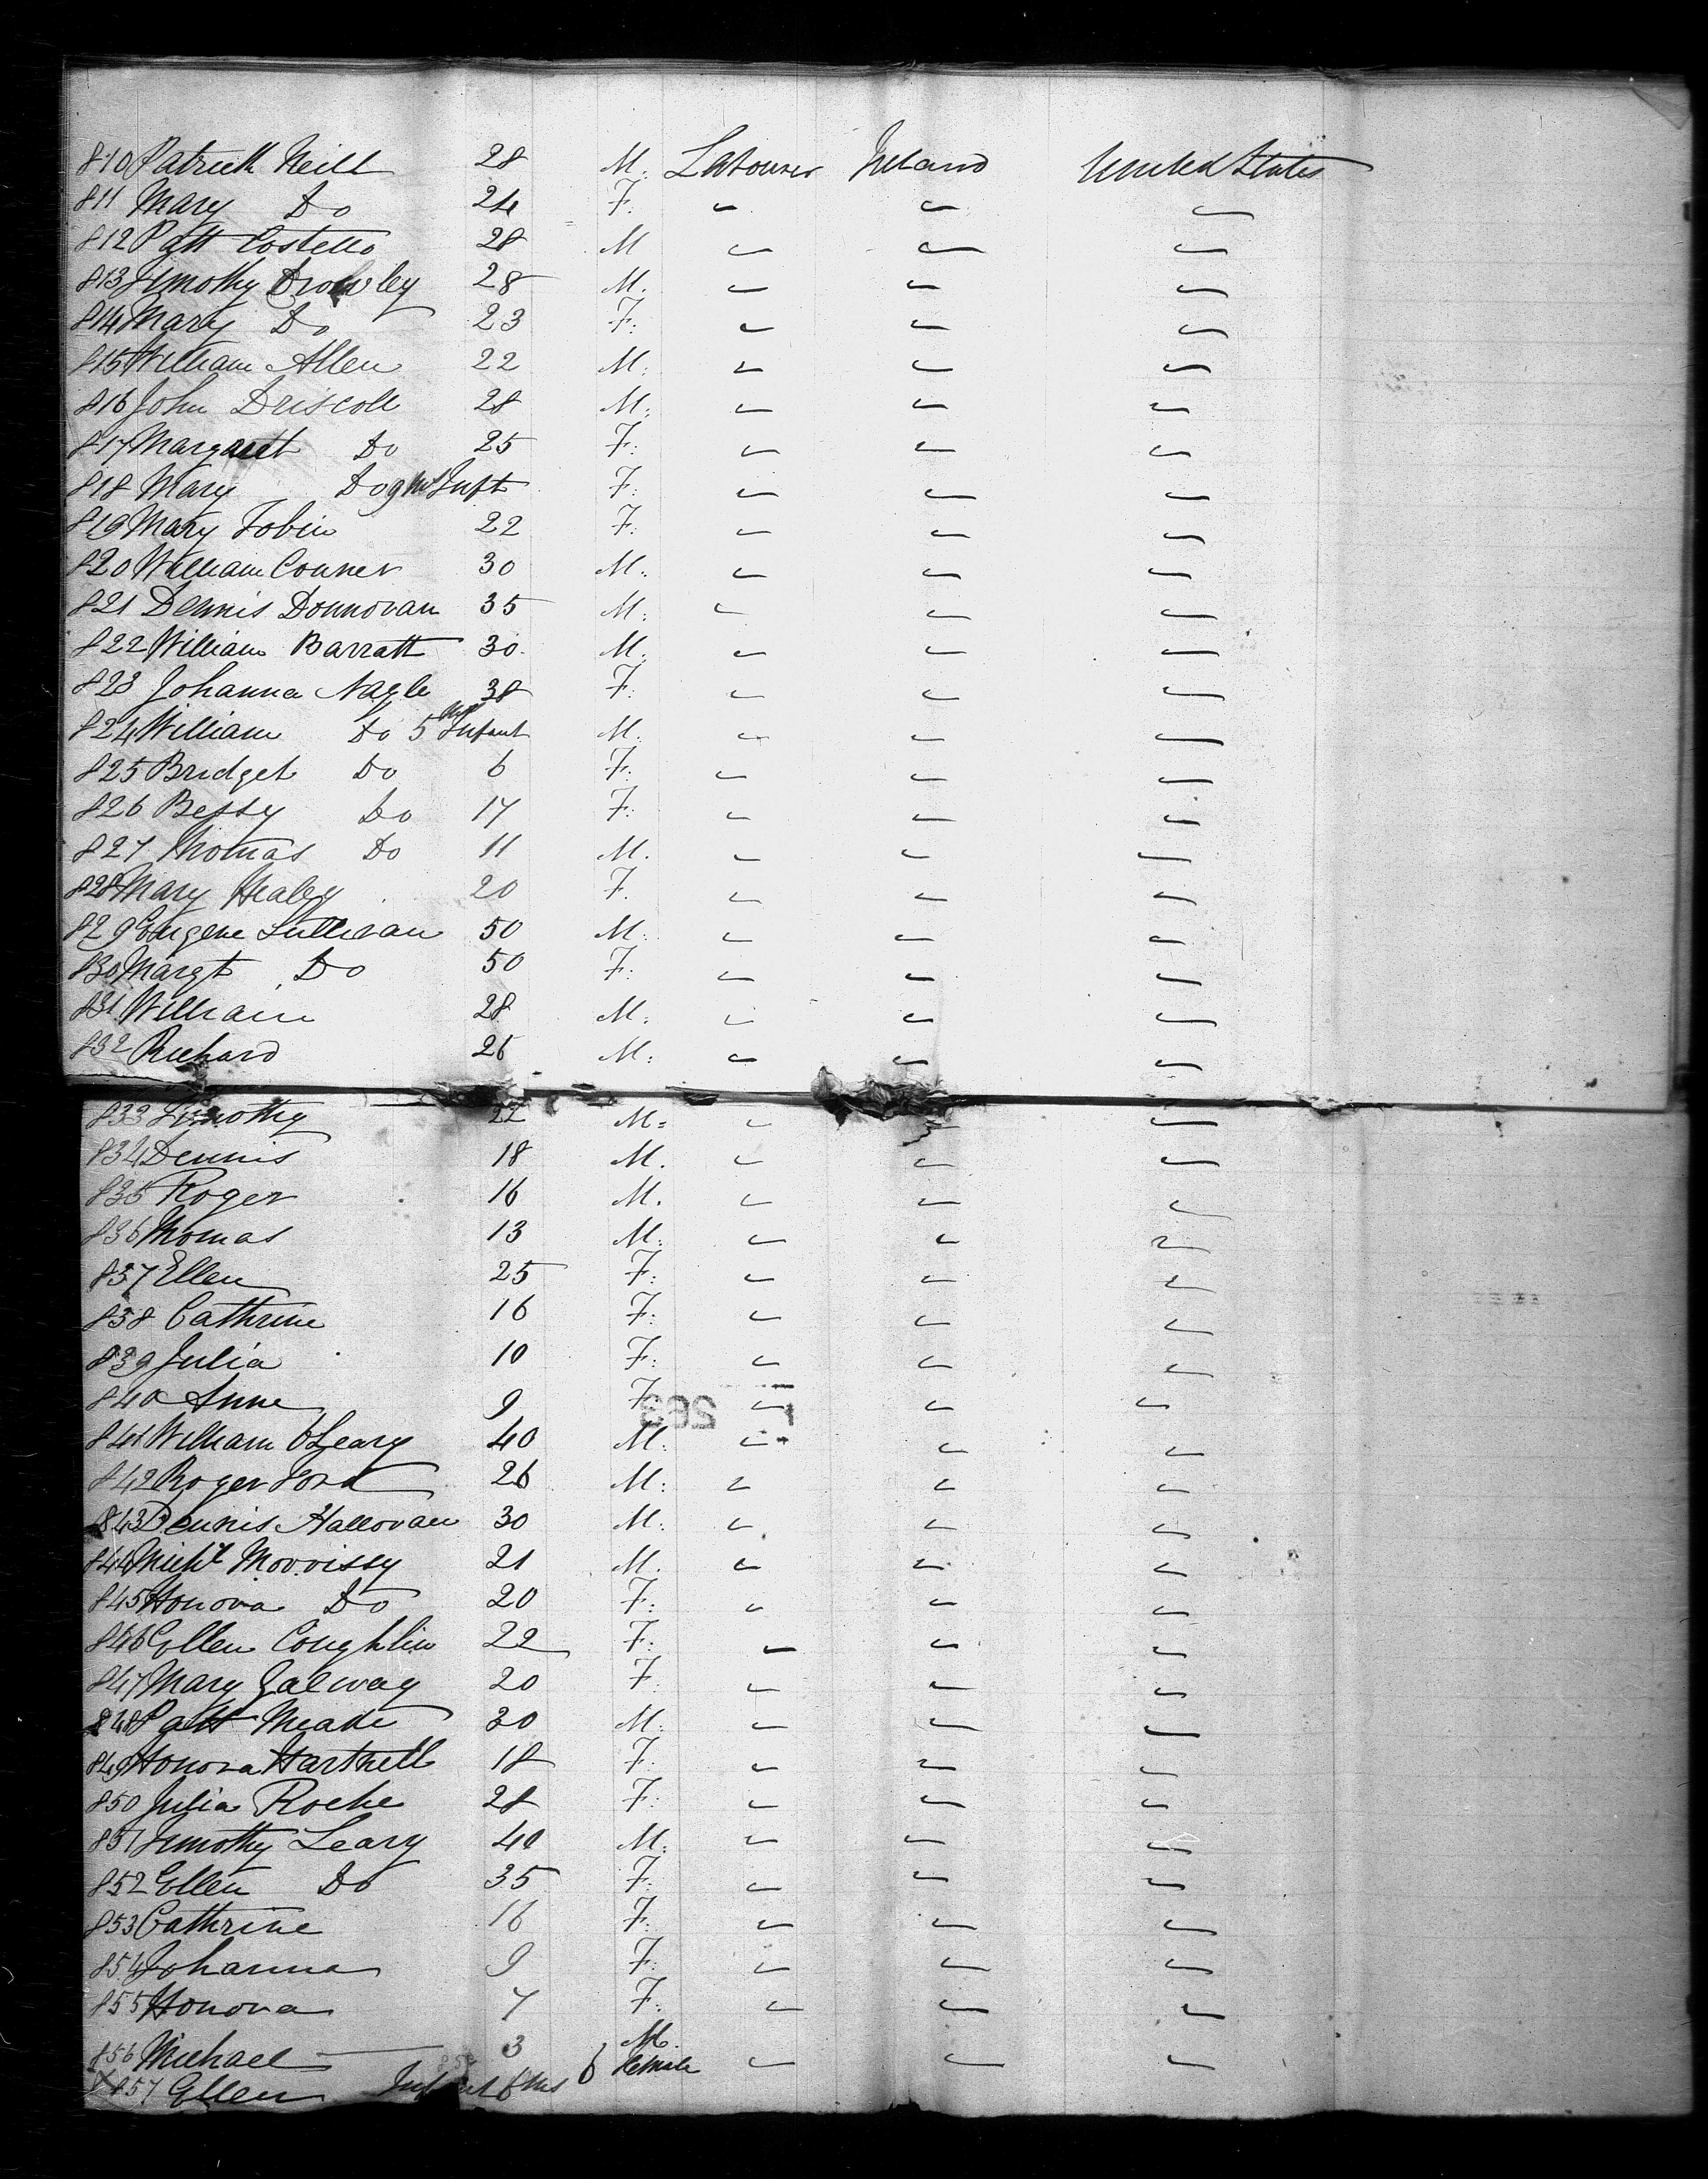 810 Patrick Neill 28 M. Labourer Ireland United States
811 Mary Do 24 F. " " "
812 Patt Costello 28 M " " "
813 Timothy Crowley 28 M. " " "
814 Mary Do 23 F: " " "
815 William Allen 22 M. " " "
816 John Driscoll 28 M: " " "
817 Margaret Do 25 F: " " "
818 Mary Do 9 Ms Inft F: " " "
819 Mary Tobin 22 F: " " "
820 William Conner 30 M: " " "
821 Dennis Donnovan 35 M: " " "
822 William Barratt 30 M. " " "
823 Johanna Nagle 38 F: " " "
824 William Do 5 Infant M. " " "
825 Bridget Do 6 F: " " "
826 Bessy Do 17 F: " " "
827 Thomas Do 11 M. " " "
828 Mary Healey 20 F. " " "
829 Eugene Sullivan 50 M: " " "
830 Margt Do 50 F: " " "
831 William 28 M: " " "
832 Richard 26 M: " " "
833 Timothy 22 M: " " "
834 Dennis 18 M. " " "
835 Roger 16 M. " " "
836 Thomas 13 M: " " "
837 Ellen 25 F: " " "
838 Cathrine 16 F: " " "
839 Julia 10 F: " " "
840 Anne 9 F " " "
841 William O'Leary 40 M: " " "
842 Roger Ford 26 M: " " "
843 Dennis Hallovan 30 M: " " "
844 Michl Morrissy 21 M. " " "
845 Honora Do 20 F: " " "
846 Ellen Coughlin 22 F: " " "
847 Mary Galway 20 F " " "
848 Patt Meade 30 M: " " "
849 Honora Hartnell 18 F: " " "
850 Julia Roche 28 F: " " "
851 Timothy Leary 40 M: " " "
852 Ellen Do 35 F: " " "
853 Cathrine 16 F: " " "
854 Johanna 9 F: " " "
855 Honora 7 F: " " "
856 Michael 3 M. " " "
857 Ellen Infant 6 Ms Female